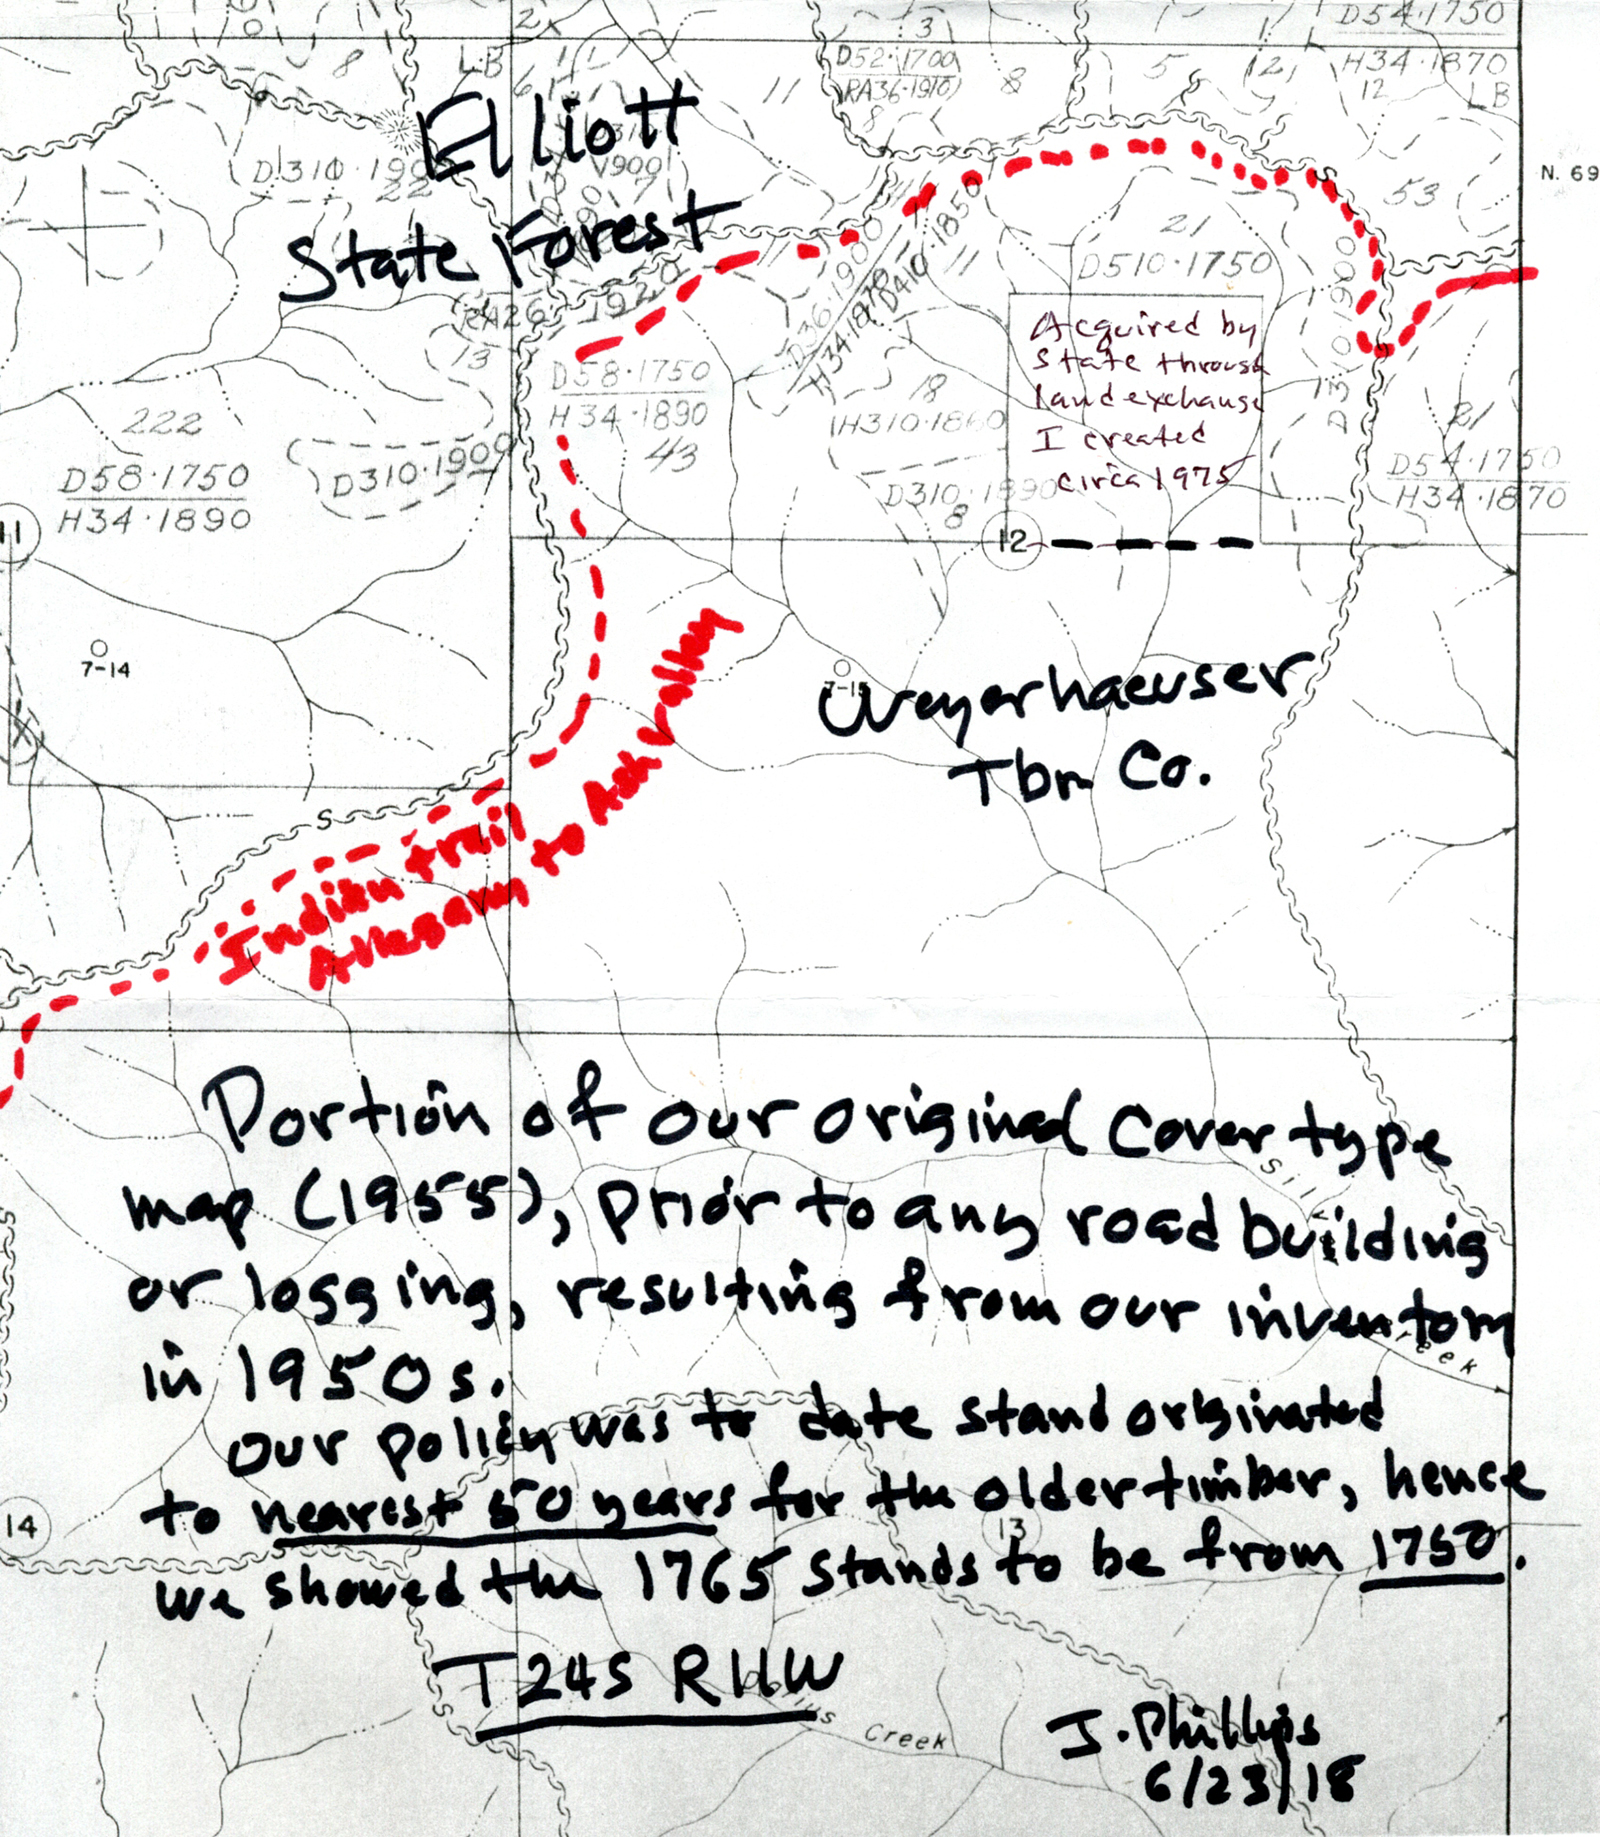 D54·1750
H34·1870
12
LB
2
3
8
LB
6
11
D52·1700
RA36·1910
8
8
5
12
11
Elliott
State Forest
D310·190
22
V900
7
N. 69
53
21
D510·1750
D36·1900
H34·1870
D410·1850
11
D310·1900
RA26
1920
13
D58·1750
H34·1890
43
18
H310·1860
D310·1890
8
Acquired by
State through
land exchange
I created
circa 1975
222
D58·1750
H34·1890
D310·1900
21
D54·1750
H34·1870
11
12
7-14
7-15
Weyerhaeuser
Tbr Co.
S
Indian trail
Allegany to Ash Valley
Portion of our original cover type
map (1955), prior to any road building
or logging, resulting from our inventory
in 1950s.
Our policy was to date stand originated
to nearest 50 years for the older timber, hence
we showed the 1765 stands to be from 1750.
14
13
T24S R11W
Creek
J. Phillips
6/23/18